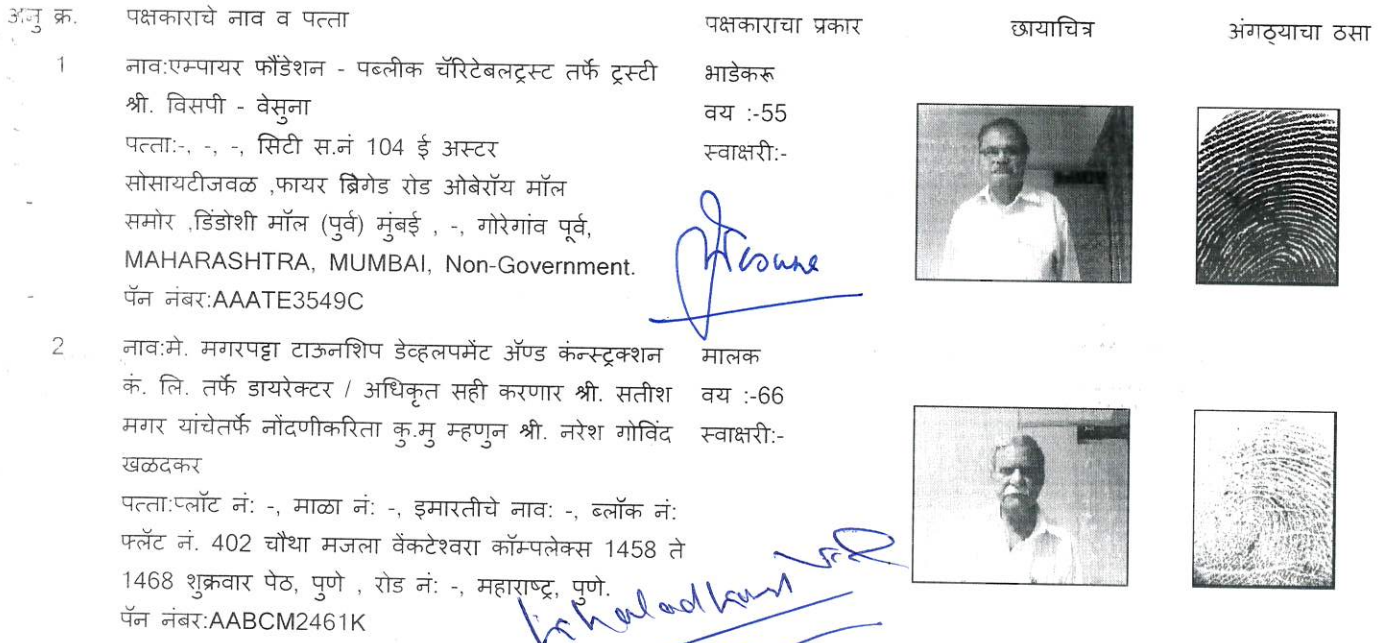 अनु क्र. पक्षकाराचे नाव व पत्ता पक्षकाराचा प्रकार छायाचित्र अंगठ्याचा ठसा
1 नाव:एम्पायर फौंडेशन - पब्लीक चॅरिटेबलट्रस्ट तर्फे ट्रस्टी भाडेकरू
श्री. विसपी - वेसुना वय :-55
पत्ता:-, -, -, सिटी स.नं 104 ई अस्टर स्वाक्षरी:-
सोसायटीजवळ ,फायर ब्रिगेड रोड ओबेरॉय मॉल
समोर ,डिंडोशी मॉल (पुर्व) मुंबई , -, गोरेगांव पूर्व,
MAHARASHTRA, MUMBAI, Non-Government.
पॅन नंबर:AAATE3549C
2 नाव:मे. मगरपट्टा टाऊनशिप डेव्हलपमेंट ॲण्ड कंन्स्ट्रक्शन मालक
कं. लि. तर्फे डायरेक्टर / अधिकृत सही करणार श्री. सतीश वय :-66
मगर यांचेतर्फे नोंदणीकरिता कु.मु म्हणुन श्री. नरेश गोविंद स्वाक्षरी:-
खळदकर
पत्ता:प्लॉट नं: -, माळा नं: -, इमारतीचे नाव: -, ब्लॉक नं:
फ्लॅट नं. 402 चौथा मजला वेंकटेश्वरा कॉम्पलेक्स 1458 ते
1468 शुक्रवार पेठ, पुणे , रोड नं: -, महाराष्ट्र, पुणे.
पॅन नंबर:AABCM2461K